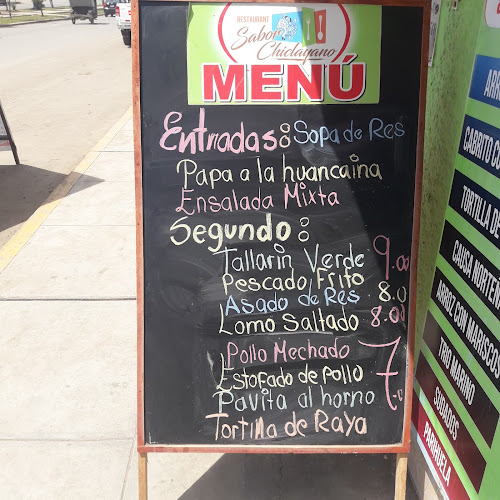 RESTAURANT
Sabor
Chiclayano
MENÚ
Entradas: Sopa de Res
Papa a la huancaina
Ensalada Mixta
Segundo:
Tallarin Verde 9.00
Pescado Frito
Asado de Res 8.0
Lomo Saltado 8.00
Pollo Mechado
Estofado de pollo 7.0
Pavita al horno
Tortilla de Raya
CABRITO CO
TORTILLA DE
CAUSA NORTEÑ
ARROZ CON MARISCOS
TRIO MARINO
SUDADOS
PARIHUELA